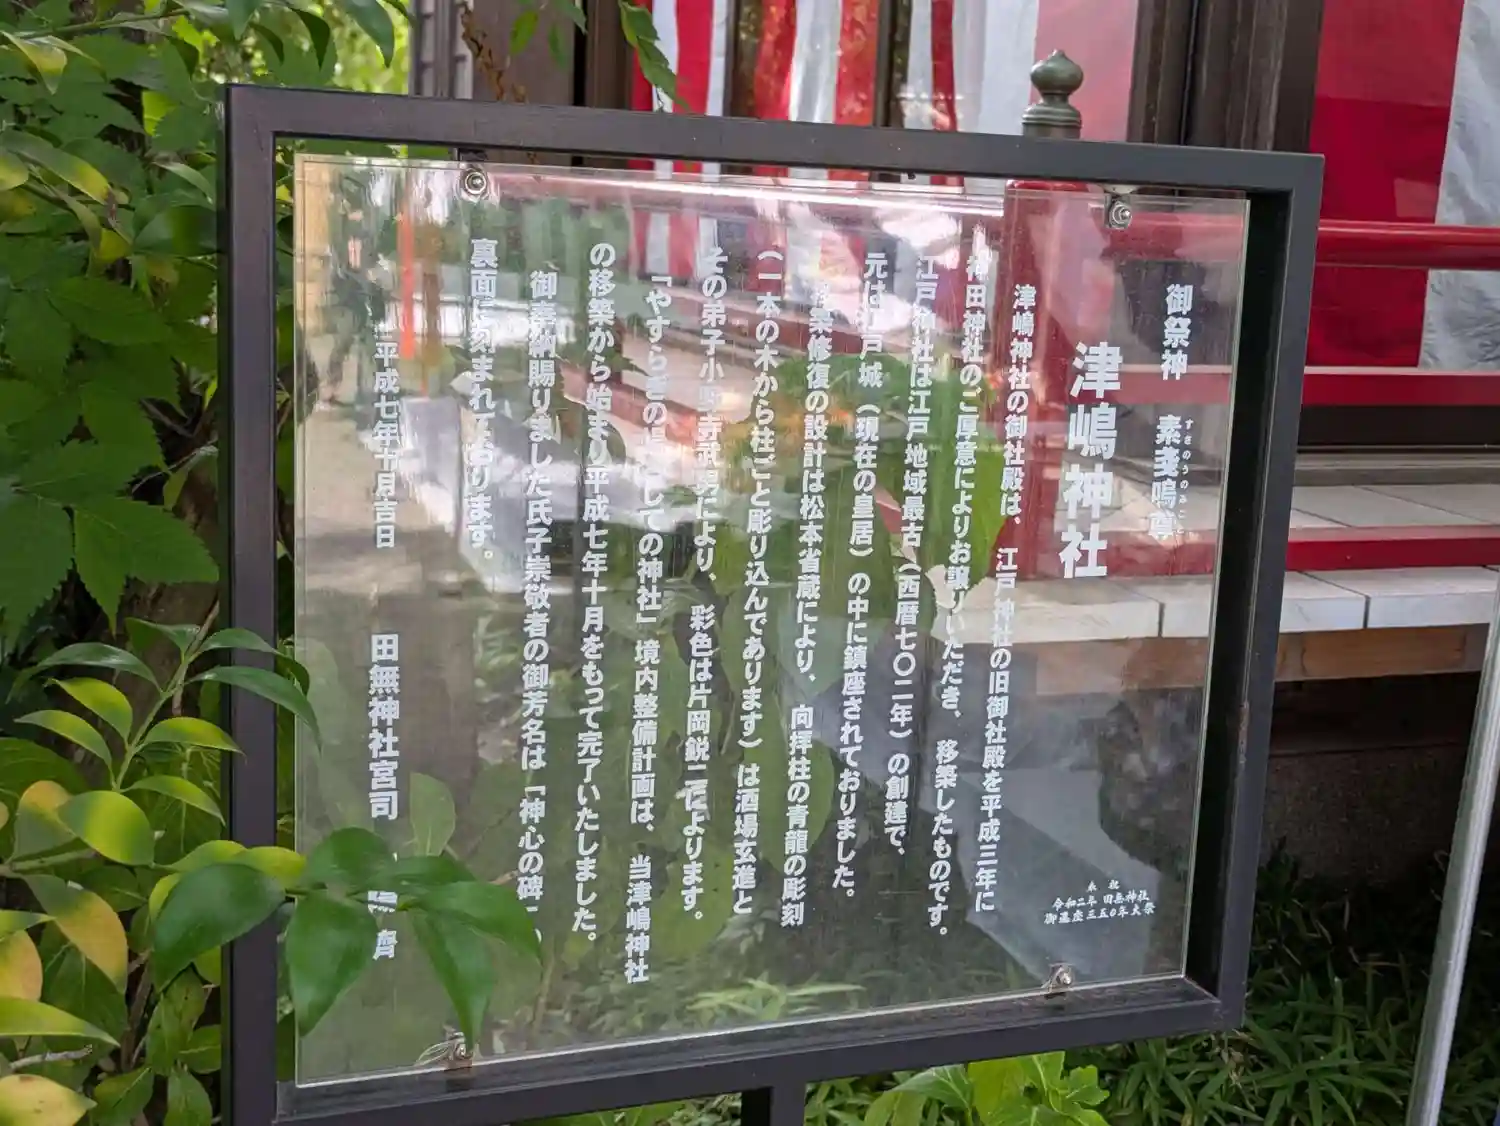 御祭神 素戔嗚尊
すさのうのみこと
津嶋神社
津嶋神社の御社殿は、江戸神社の旧御社殿を平成三年に
神田神社のご厚意によりお譲りいただき、移築したものです。
江戸神社は江戸地域最古（西暦七〇二年）の創建で、
元は江戸城（現在の皇居）の中に鎮座されておりました。
移築修復の設計は松本省蔵により、向拝柱の青龍の彫刻
（一本の木から柱ごと彫り込んであります）は酒場玄進と
その弟子小野寺武男により、彩色は片岡鋭二によります。
「やすらぎの場としての神社」境内整備計画は、当津嶋神社
の移築から始まり平成七年十月をもって完了いたしました。
御奉納賜りました氏子崇敬者の御芳名は「神心の碑」の
裏面に刻まれております。
平成七年十月吉日 田無神社宮司 濟
奉祝
令和二年 田無神社
御遷座三五〇年大祭